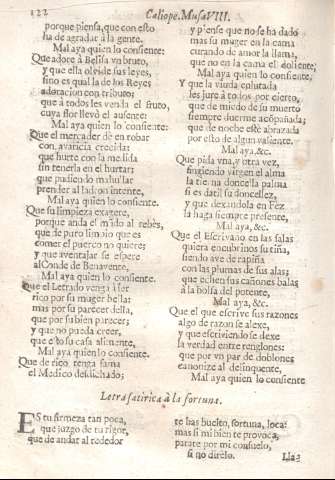 122
Caliope. Musa VIII.
porque piensa, que con esto
ha de agradar à la gente.
Mal aya quien lo consiente:
Que adore à Belisa vn bruto,
y que ella olvide sus leyes,
sino es qual la de los Reyes
adoracion con tributo;
que à todos les venda el fruto,
cuya flor llevò el ausente:
Mal aya quien lo consiente:
Que el mercader dè en robar
con avaricia crecida:
que hurte con la medida
sin tenerla en el hurtar;
que pudiendo maullar
prender al ladron intente,
Mal aya quien lo consiente.
Que su limpieza exagere,
porque anda el mundo al rebès,
que de puro limpio que es
comer el puerco no quiere;
y que aventajar se espere
al Conde de Benavente,
Mal aya quien lo consiente.
Que el Letrado venga à ser
rico por su muger bella:
mas por su parecer della,
que por su bien parecer;
y que no pueda creer,
que esto su casa alimente,
Mal aya quien lo consiente.
Que de rico, tenga fama
el Medico desdichado;
y piense que no se ha dado
mas su muger en la cama
curando de amor la llama,
que no en la cama el doliente;
Mal aya quien lo consiente,
Y que la viuda enlutada
les jure à todos por cierto,
que de miedo de su muerto
siempre duerme acompañada;
que de noche estè abrazada
por esto de algun valiente.
Mal aya, &c.
Que pida vna, y otra vez,
fingiendo virgen el alma
la tierna doncella palma
si es datil su doncellez,
y que dexandola en Fèz
la haga siempre presente,
Mal aya, &c.
Que el Escrivano en las salas
quiera encubrirnos su tiña,
siendo ave de rapiña
con las plumas de sus alas;
que echen sus cañones balas
à la bolsa del potente,
Mal aya, &c.
Que el que escrive sus razones
algo de razon se alexe,
y que escriviendo se dexe
la verdad entre renglones:
que por vn par de doblones
canonize al delinquente,
Mal aya quien lo consiente
Letra satirica à la fortuna.
ES tu firmeza tan poca,
que juzgo de tu rigor,
que de andar al rededor
te has buelto, fortuna, loca:
mas si mi bien te provoca,
parate por mi consuelo,
si no direlo.